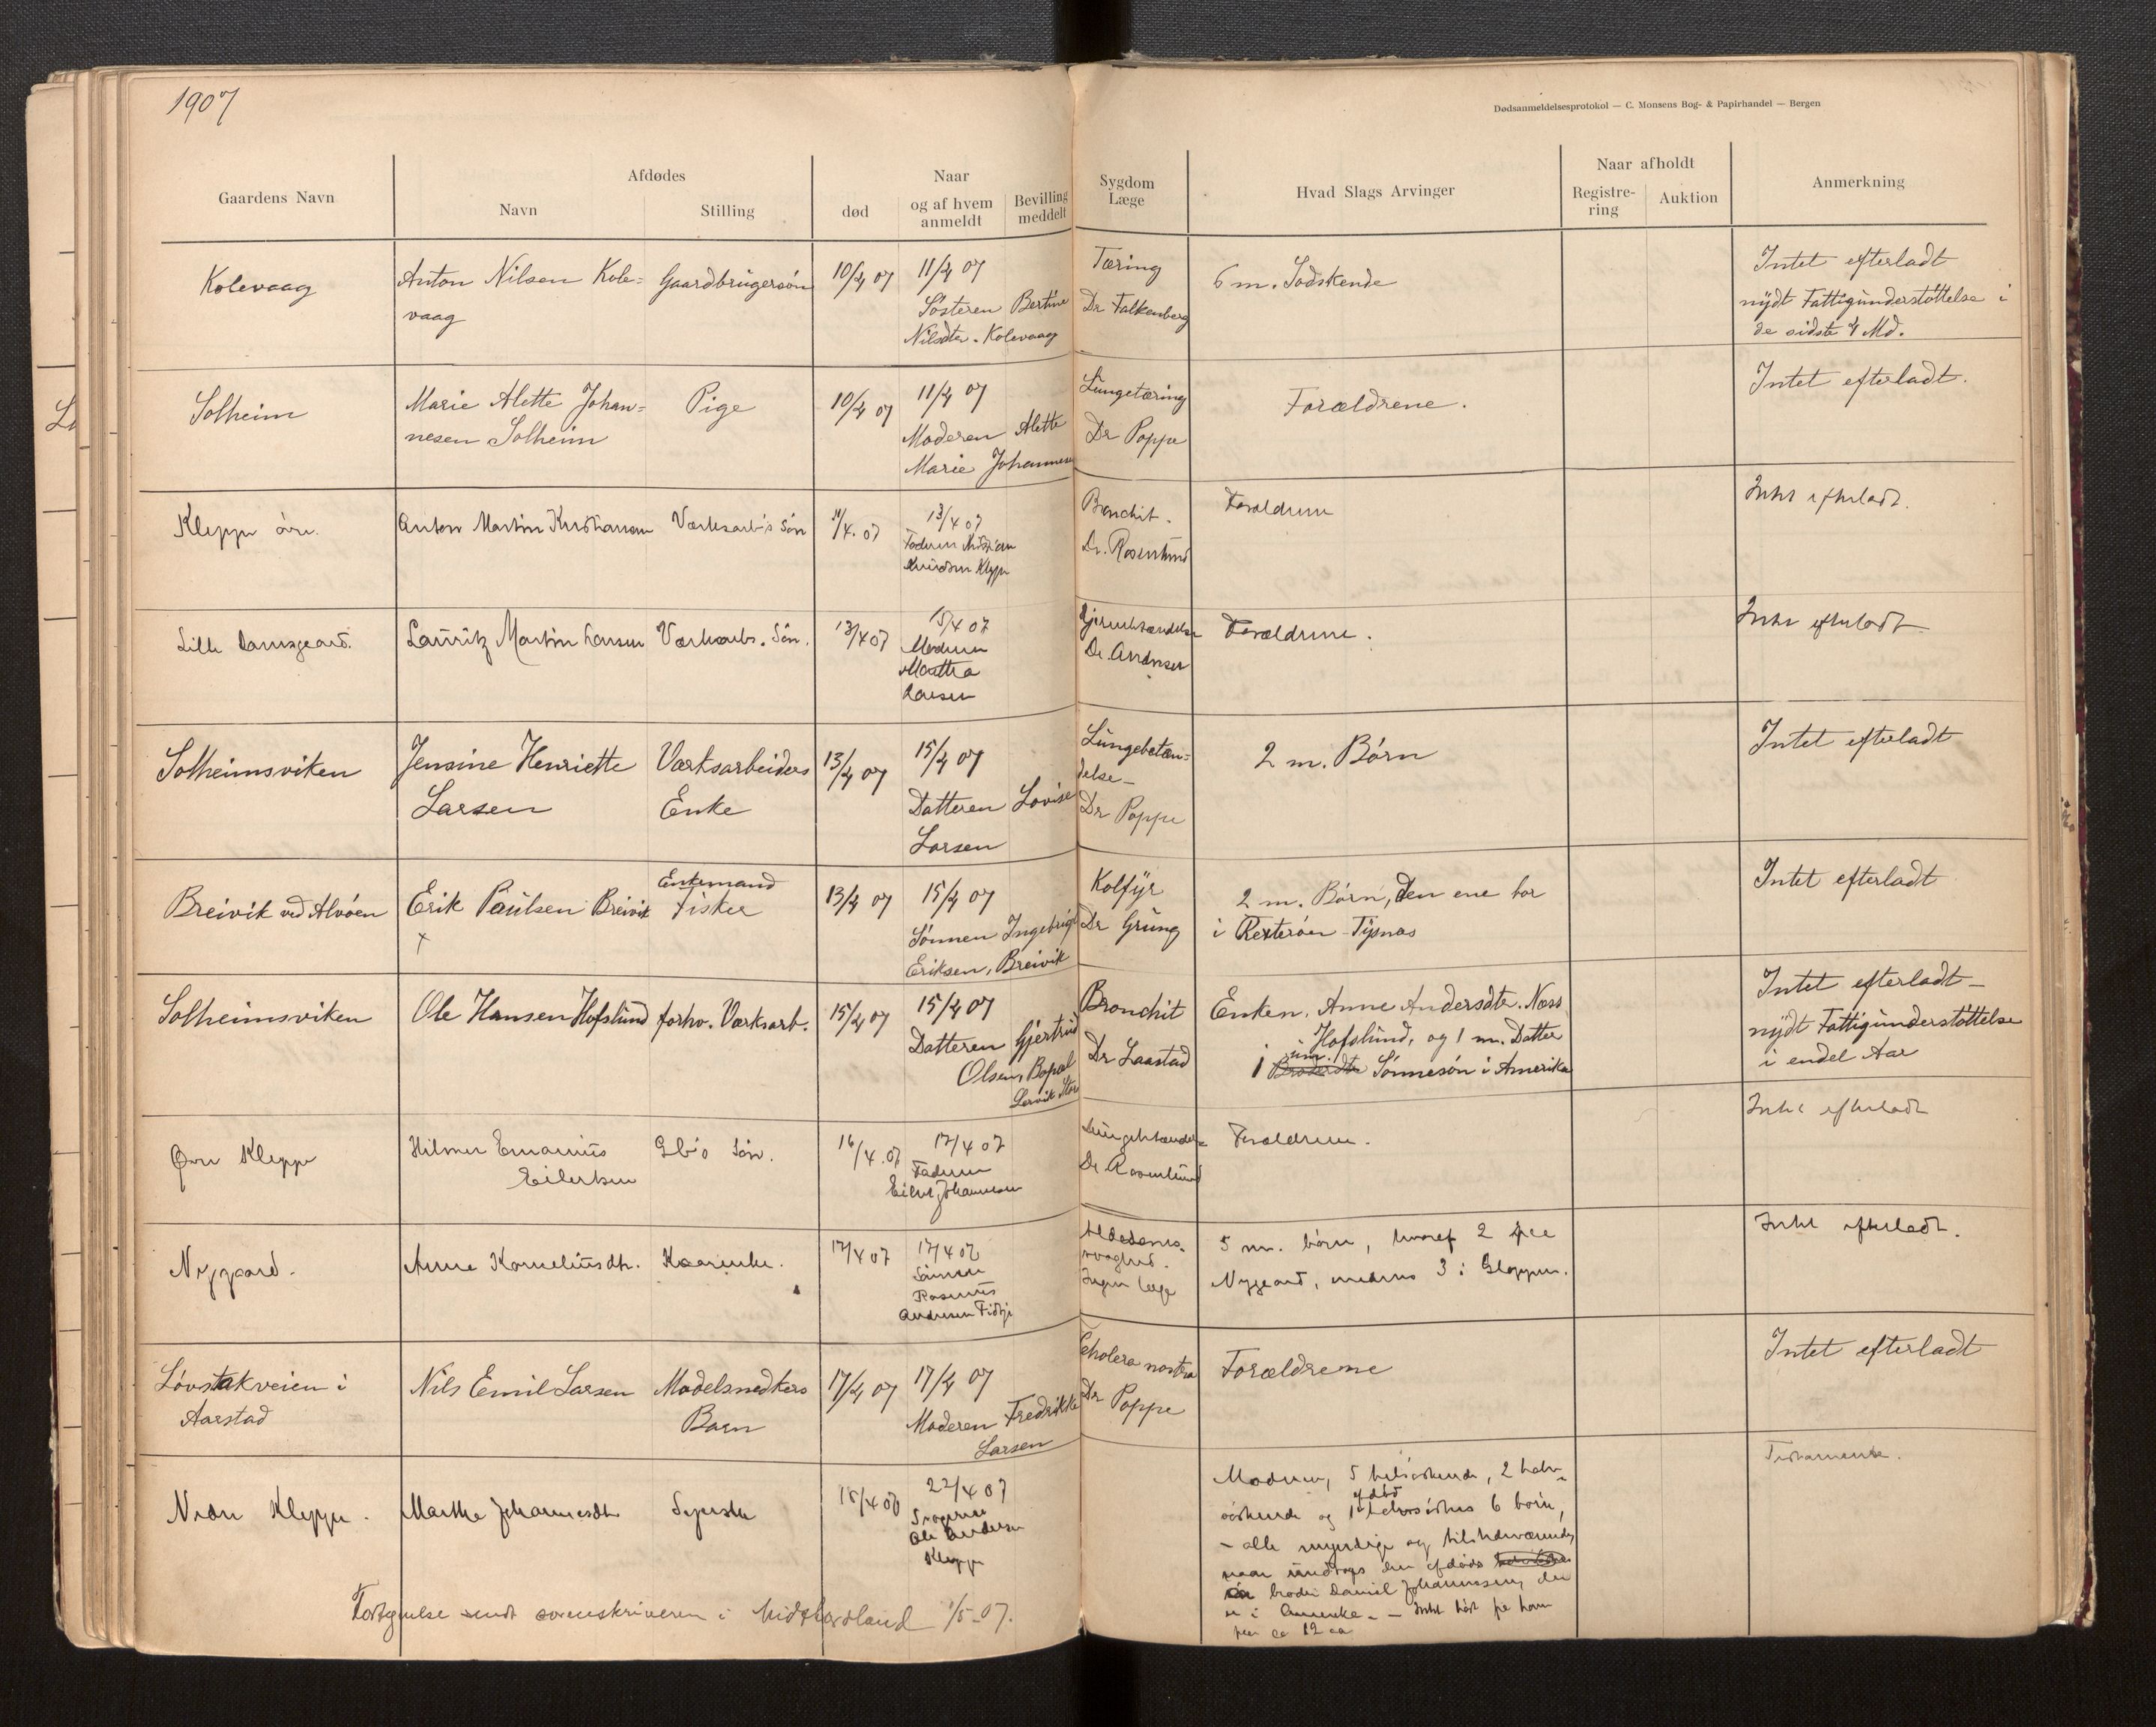 1907
Dødsanmeldelsesprotokol — C. Monsens Bog- & Papirhandel — Bergen
Gaardens Navn
Afdødes
Navn
Stilling
Naar
død
og af hvem
anmeldt
Bevilling
meddelt
Sygdom
Læge
Hvad Slags Arvinger
Naar afholdt
Registre-
ring
Auktion
Anmerkning
Kolevaag
Anton Nilsen Kole=
vaag
Gaardbrugersøn
10/4 07
11/4 07
Søsteren Bertine
Nilsdtr. Kolevaag
Tæring
Dr Falkenberg
6 m. Sødskende
Intet efterladt
nydt Fattigunderstøttelse i
de sidste 4 Md.
Solheim
Marie Alette Johan=
nesen Solheim
Pige
10/4 07
11/4 07
Moderen Alette
Marie Johannesen
Lungetæring
Dr Poppe
Forældrene.
Intet efterladt.
Kleppe øvre.
Anton Martin Kristiansen
Værksarb's Søn
11/4. 07
13/4 07
Faderen Kristian
Knudsen Kleppe
Bronchit.
Dr. Rosenlund
Forældrene
Intet efterladt.
Lille Damsgaard.
Lauritz Martin Larsen
Værksarbs. Søn.
13/4 07
15/4 07
Moderen
Martha
Larsen
Hjernebetændelse
Dr. Andersen
Forældrene.
Intet efterladt
Solheimsviken
Jensine Henriette
Larsen
Værksarbeiders
Enke
13/4 07
15/4 07
Datteren Lovise
Larsen
Lungebetæn=
delse
Dr Poppe
2 m. Børn
Intet efterladt
Breivik ved Alvøen
Erik Paulsen Breivik
+
Enkemand
Fisker
13/4 07
15/4 07
Sønnen Ingebrigt
Eriksen, Breivik
Kolfyr
Dr Grung
2 m. Børn, den ene bor
i Rexterøen Tysnæs
Intet efterladt
Solheimsviken
Ole Hansen Hofslund
forhv. Værksarb.
15/4 07
15/4 07
Datteren Gjertrud
Olsen, Bopæl
Lervik Stor
Bronchit
Dr Laastad
Enken. Anne Andersdtr. Næss
Hofslund, og 1 m. Datter
1 um. Sønnesøn i Amerika
Intet efterladt —
nydt Fattigunderstøttelse
i endel Aar
Øvre Kleppe
Hilmer Emanius
Eilertsen
Gb's Søn.
16/4. 07
17/4 07
Faderen
Eilert Johannesen
Lungebetændelse
Dr Rosenlund
Forældrene.
Intet efterladt
Nygaard.
Anne Korneliusdtr.
Kaarenke.
17/4 07
17/4 07
Sønnen
Rasmus
Andersen Fidje
Alderdoms-
svaghed.
Ingen læge
5 m. børn, hvoraf 2 paa
Nygaard, medens 3 i Gloppen.
Intet efterladt.
Løvstakveien i
Aarstad
Nils Emil Larsen
Modelsnedkers
Barn
17/4 07
17/4 07
Moderen Fredrikke
Larsen
Cholera nostra
Dr Poppe
Forældrene
Intet efterladt
Nedre Kleppe.
Marthe Johannesdtr
Syerske
18/4 07
22/4 07
Svogeren
Ole Andersen
Kleppe
Moderen, 5 helsøskende, 2 halv-
søskende og 1 afdød halvsøsters 6 børn,
— alle myndige og tilstedeværende,
naar undtages den afdødes
broder Daniel Johannesen, der
er i Amerika. — Intet hørt fra ham
paa ca 12 aar
Testamente.
Fortegnelse sendt sorenskriveren i Midthordland 1/5-07.